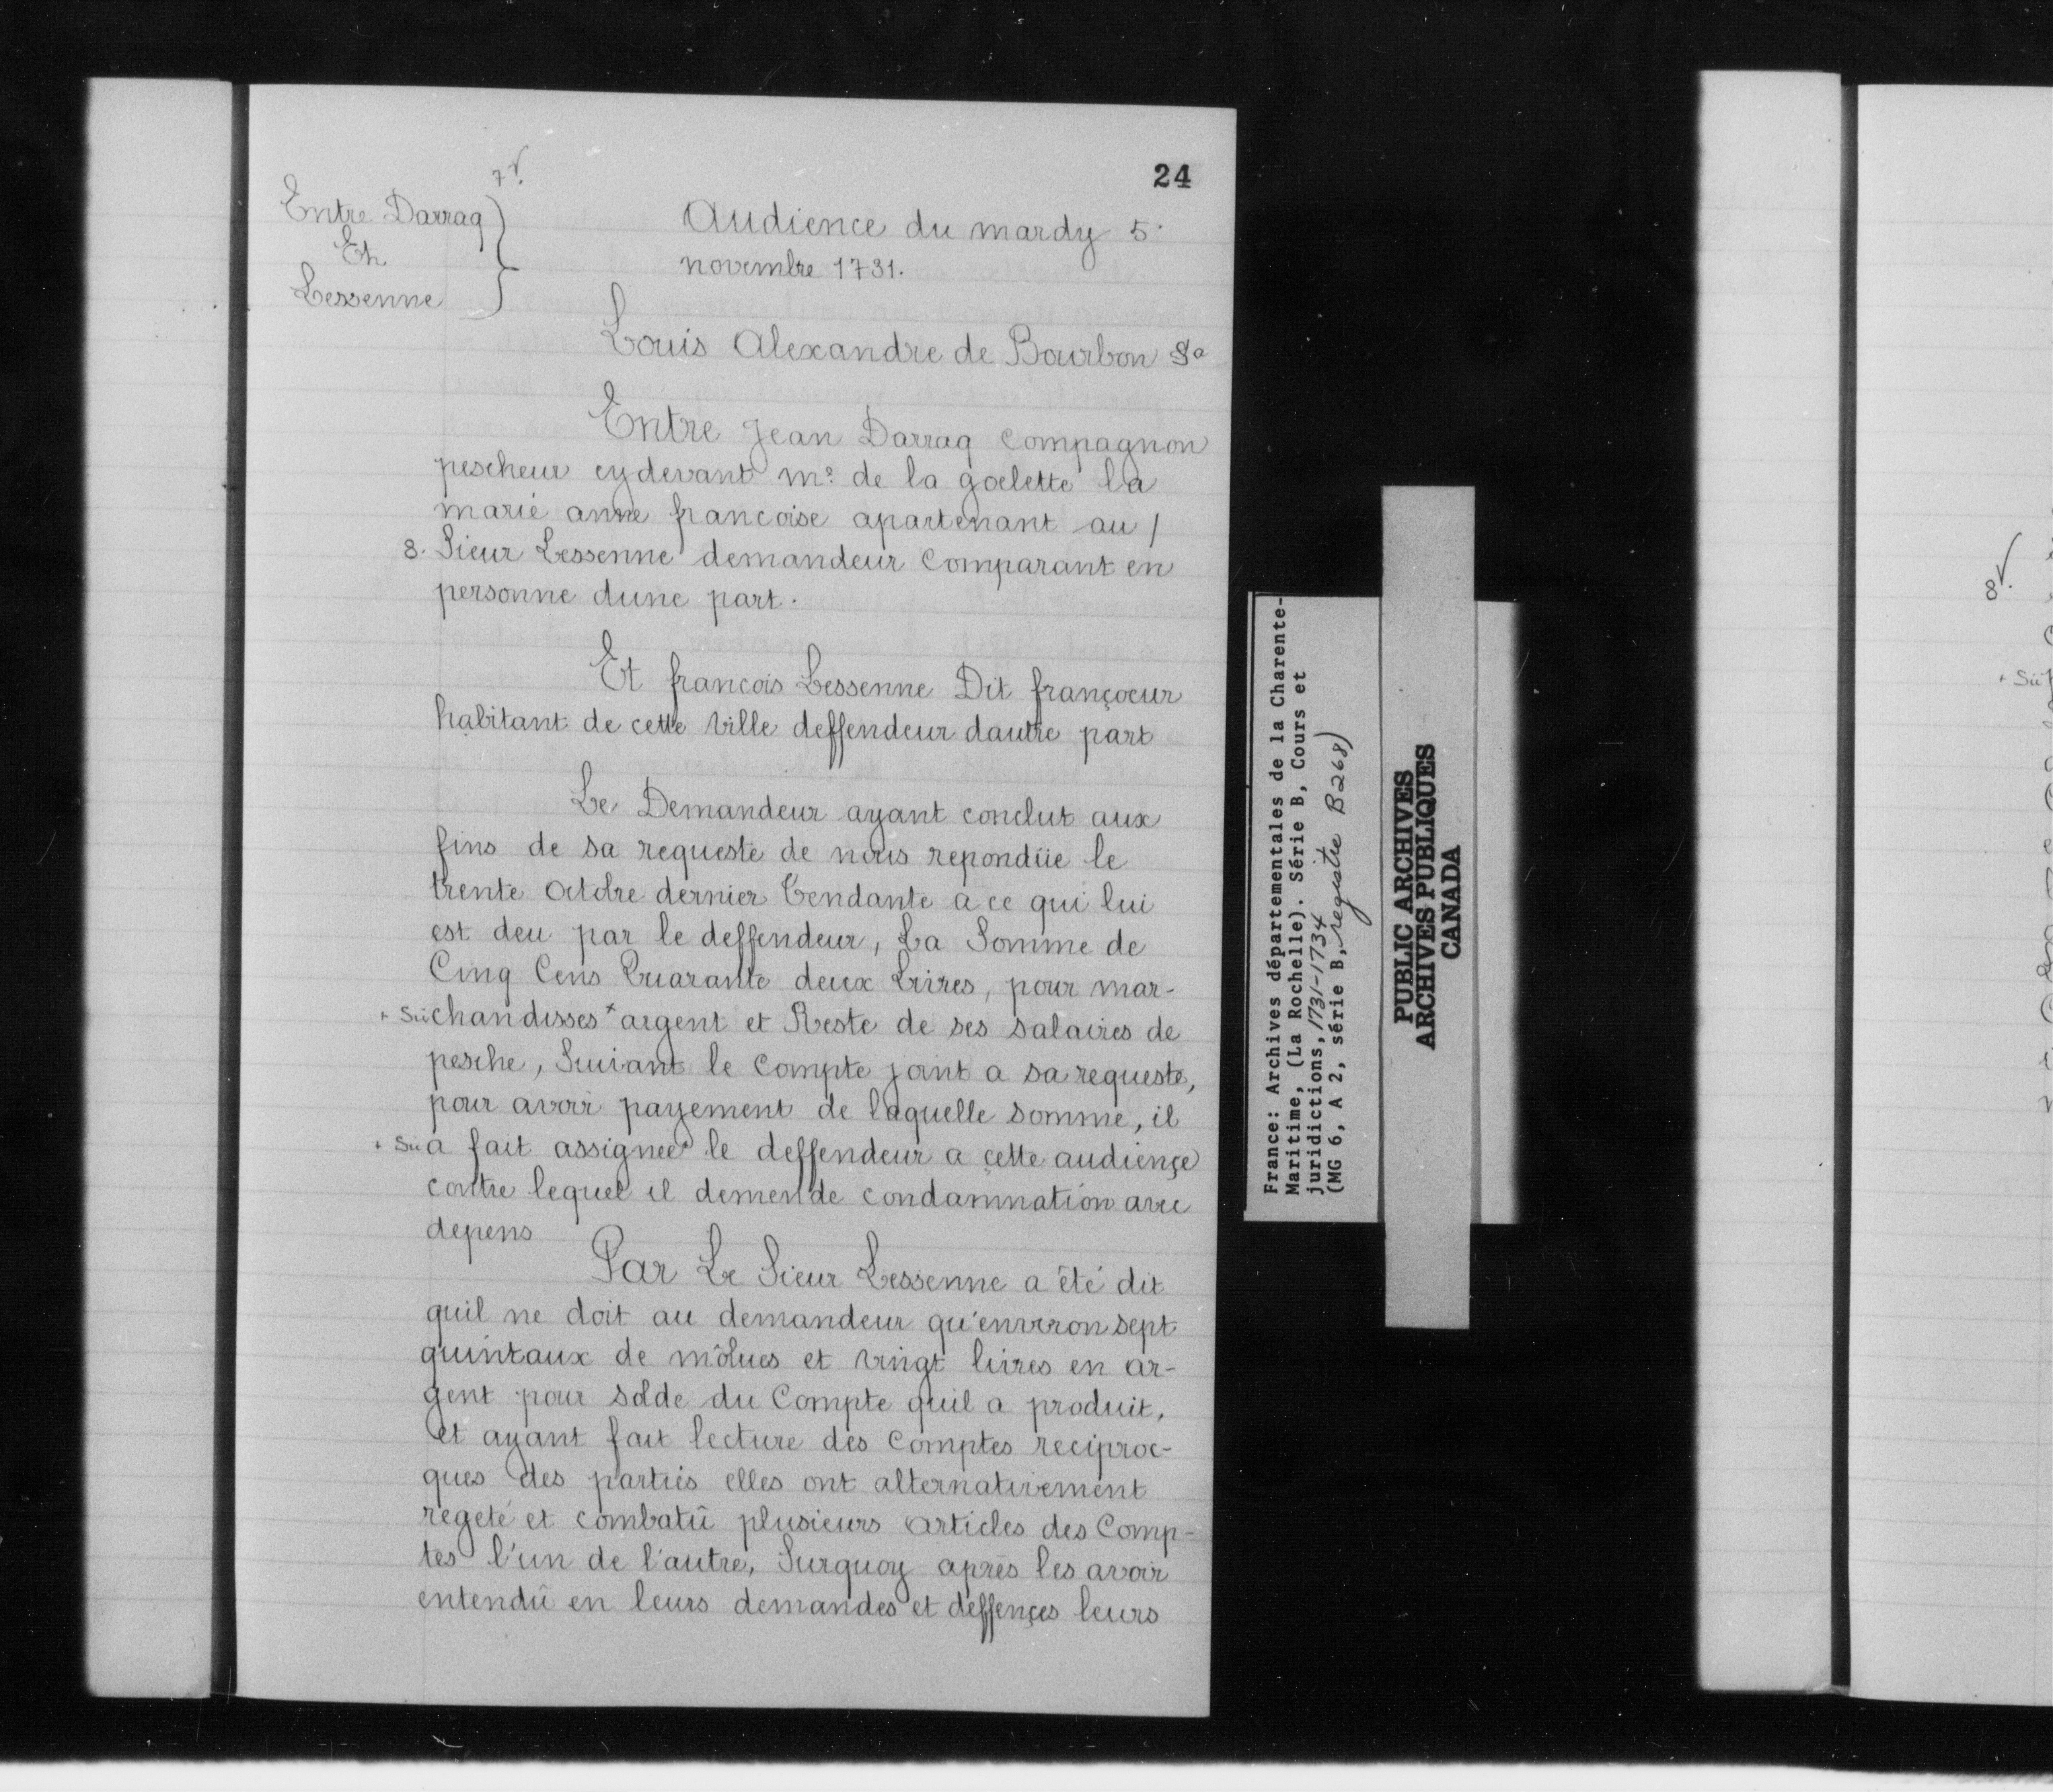 24
7 v.
Entre Darraq
Et
Lessenne
Audience du mardy 5.
novembre 1731.
Louis Alexandre de Bourbon &a
Entre Jean Darraq compagnon
pescheur cydevant me. de la goelette la
marie anne francoise apartenant au /
8. Sieur Lessenne demandeur comparant en
personne dune part.
Et francois Lessenne Dit françoeur
habitant de cette ville deffendeur dautre part
Le Demandeur ayant conclut aux
fins de sa requeste de nous repondüe le
trente octobre dernier tendante a ce qui lui
est deu par le deffendeur, La Somme de
Cinq Cens Quarante deux Livres, pour mar-
+ Sic chandisses + argent et Reste de ses salaires de
pesche, Suivant le compte joint a sa requeste,
pour avoir payement de laquelle somme, il
+ Sic a fait assignee + le deffendeur a cette audiençe
contre lequel il demende condamnation avec
depens
Par Le Sieur Lessenne a été dit
quil ne doit au demandeur qu'environ sept
quintaux de môlues et vingt livres en ar-
gent pour solde du Compte quil a produit,
et ayant fait lecture des comptes reciproc-
ques des parties elles ont alternativement
regeté et combatû plusieurs articles des Comp-
tes l'un de l'autre, Surquoy après les avoir
entendû en leurs demandes et deffençes leurs
France: Archives départementales de la Charente-
Maritime, (La Rochelle). Série B, Cours et
juridictions, 1731-1734
(MG 6, A 2, série B, registre B268)
PUBLIC ARCHIVES
ARCHIVES PUBLIQUES
CANADA
8 v.
+ Sic